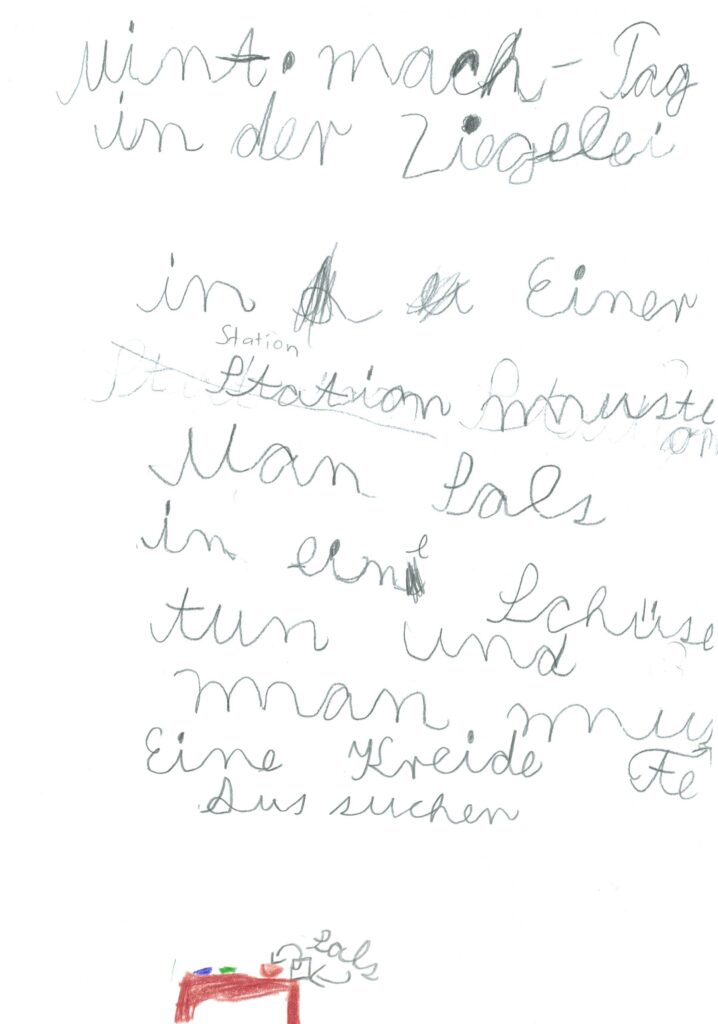 Mint-mach-Tag
in der Ziegelei
in Einer
Station
Station muste
Man Sals
in eine Schüse
tun und
man mus
Eine Kreide Fe
Aus suchen
Sals